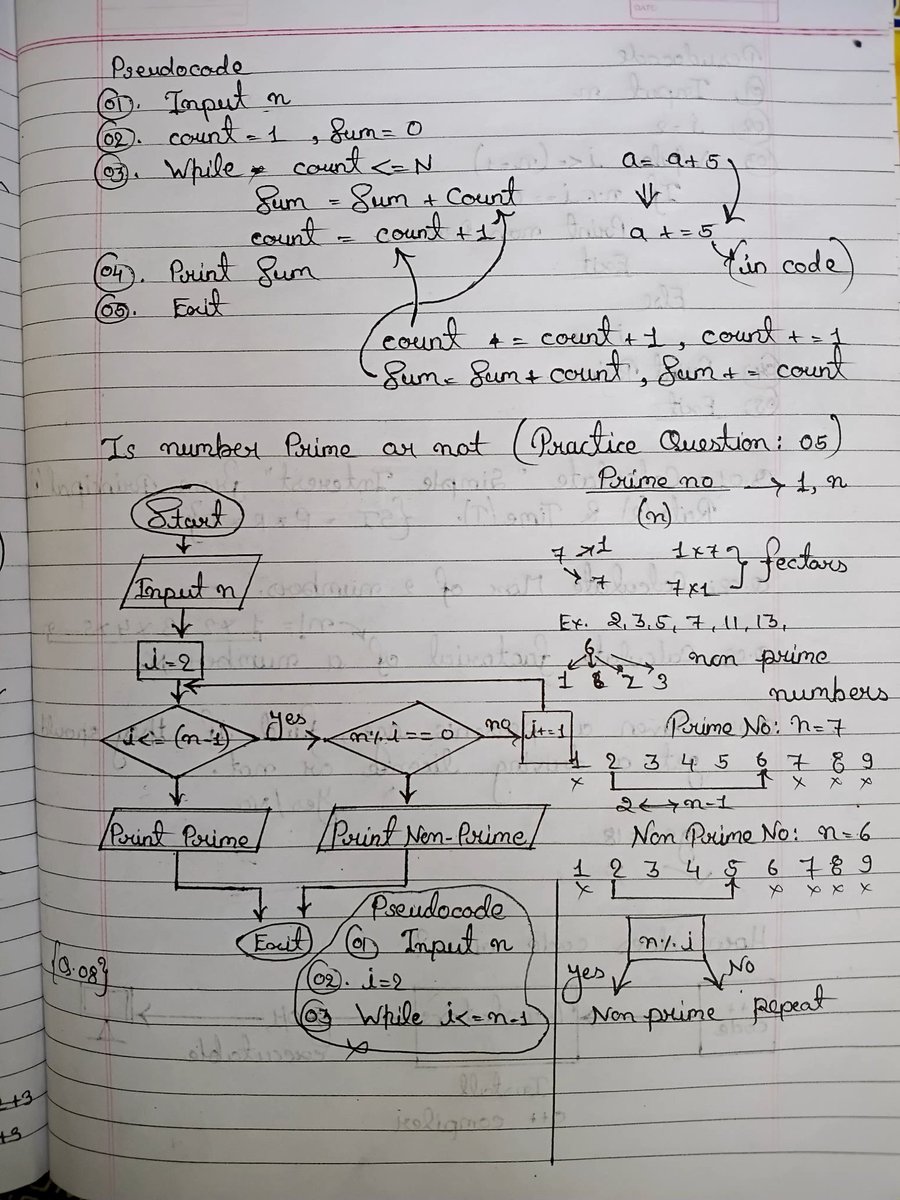 Pseudocode
01. Input n
02. count = 1 , Sum = 0
03. While count <= N
Sum = Sum + Count
count = count + 1
04. Print Sum
05. Exit
a = a + 5
a += 5
(in code)
count += count + 1 , count += 1
Sum = Sum + count , Sum += count
Is number Prime or not (Practice Question: 05)
Start
Input n
i=2
i<= (n-1)
yes
n% i == 0
no
i+=1
Print Prime
Print Non-Prime
Exit
{Q.08}
Pseudocode
01 Input n
02. i=2
03 While i<=n-1
Prime no → 1, n
(n)
7 → 1 1×7 } fectors
→ 7 7×1
Ex. 2,3,5, 7, 11, 13,
6 non prime
1 6 2 3 numbers
Prime No: n=7
1 2 3 4 5 6 7 8 9
x x x x
2 ↔ n-1
Non Prime No: n=6
1 2 3 4 5 6 7 8 9
x x x x x
n% i
yes No
Non prime repeat